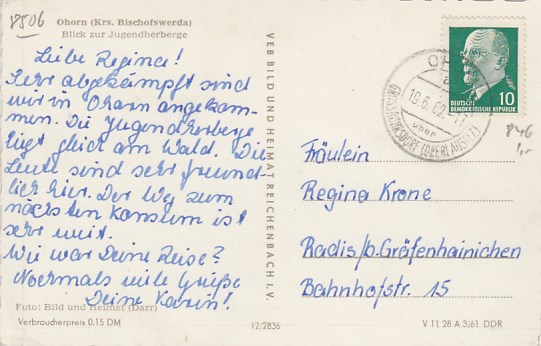 8506
Ohorn (Krs. Bischofswerda)
Blick zur Jugendherberge
Liebe Regina!
Sehr abgekämpft sind
wir in Ohorn angekom-
men. Die Jugendherberge
liegt gleich am Wald. Die
Leute sind sehr freund-
lich hier. Der Weg zum
nächsten Konsum ist
sehr weit.
Wie war Deine Reise?
Nochmals viele Grüße
Deine Karin!
Foto: Bild und Heimat (Darr)
Verbraucherpreis 0.15 DM
VEB BILD UND HEIMAT REICHENBACH I. V.
12/2836
OHORN
19.6.62
über
GROSSRÖHRSDORF (OBERLAUSITZ)
DEUTSCHE
DEMOKRATISCHE REPUBLIK
10
Fräulein
Regina Krone
Radis/b. Gräfenhainichen
Bahnhofstr. 15
V 11 28 A 3/61 DDR